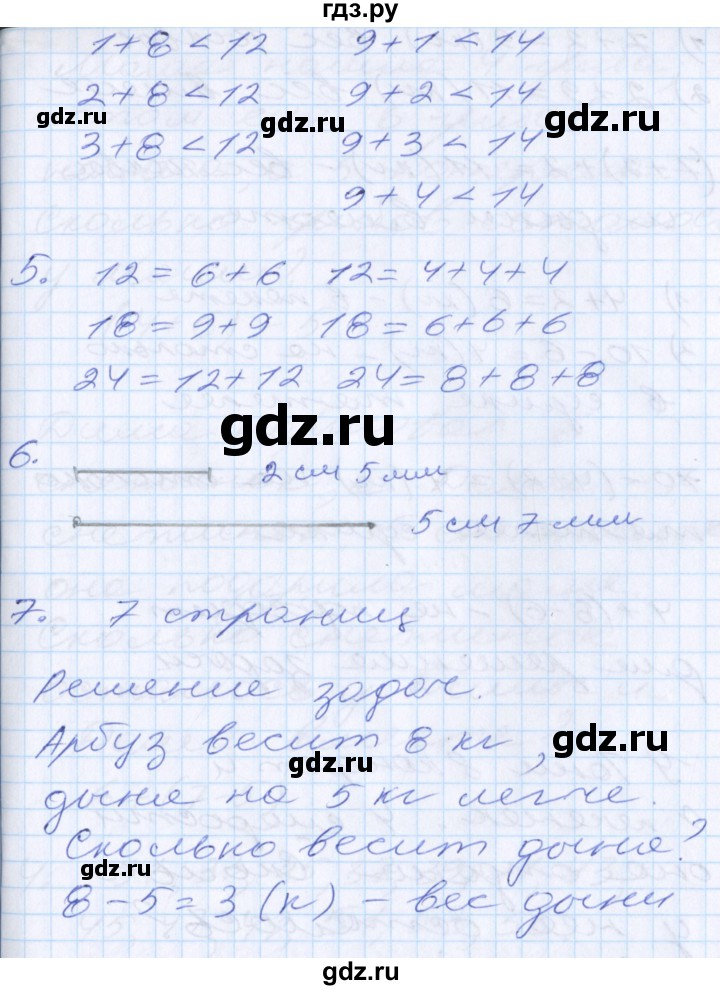 гдз.ру
1+8<12 9+1<14
2+8<12 9+2<14
gdz.ru gdz.ru gdz.ru
3+8<12 9+3<14
9+4<14
5. 12=6+6 12=4+4+4
18=9+9 18=6+6+6
24=12+12 24=8+8+8
gdz.ru
6. 2 см 5 мм
5 см 7 мм
7. 7 страниц
Решение задач.
Арбуз весит 8 кг,
gdz.ru gdz.ru
дыня на 5 кг легче.
Сколько весит дыня?
gdz.ru
8-5=3 (к) - вес дыни
gdz.ru
gdz.ru